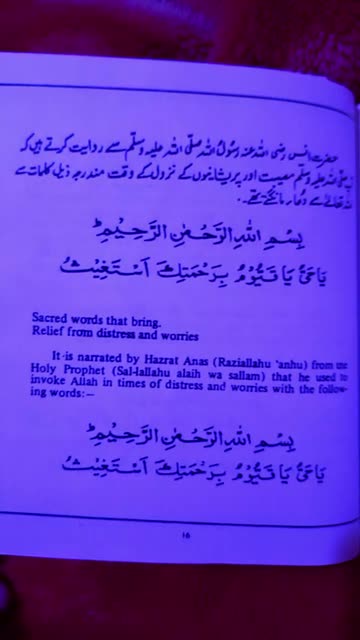 حضرت انس رضی اللہ عنہ رسول اللہ صلی اللہ علیہ وسلم سے روایت کرتے ہیں کہ
صلی اللہ علیہ وسلم مصیبت اور پریشانیوں کے نزول کے وقت مندرجہ ذیل کلمات سے
اللہ تعالیٰ سے دعا مانگتے تھے۔
بِسْمِ اللهِ الرَّحْمٰنِ الرَّحِيْمِ
يَا حَيُّ يَا قَيُّوْمُ بِرَحْمَتِكَ اَسْتَغِيْثُ
Sacred words that bring.
Relief from distress and worries
It is narrated by Hazrat Anas (Raziallahu 'anhu) from the
Holy Prophet (Sal-lallahu alaih wa sallam) that he used to
invoke Allah in times of distress and worries with the follow-
ing words:—
بِسْمِ اللهِ الرَّحْمٰنِ الرَّحِيْمِ
يَا حَيُّ يَا قَيُّوْمُ بِرَحْمَتِكَ اَسْتَغِيْثُ
١٥